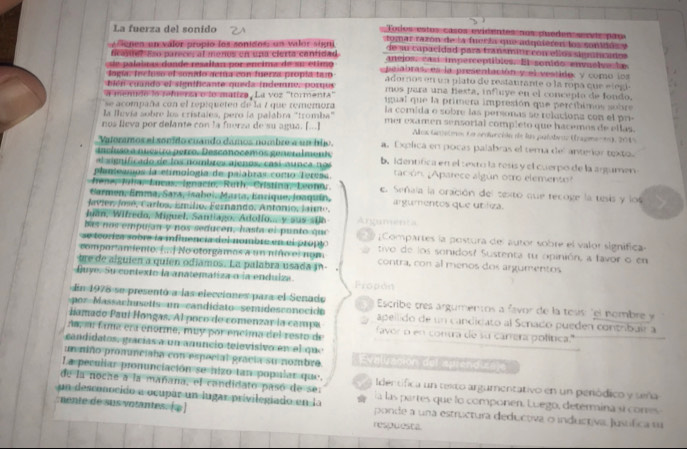 La fuerza del sonido
¿Tienen un valor propio los sonidos, un valor signi-
ficativo? Eso parece, al menos en una cierta cantidad
de palabras donde resaltan por encima de su etimo-
logía. Incluso el sonido actúa con fuerza propia tam-
bién cuando el significante queda indemne, porque
a menudo lo refuerza o lo matiza. La voz "tormenta"
se acompaña con el repiqueteo de la t que rememora
la lluvia sobre los cristales, pero la palabra "tromba"
nos lleva por delante con la fuerza de su agua. [...]
Valoramos el sonido cuando damos nombre a un hijo,
incluso a nuestro perro. Desconocemos generalmente
el significado de los nombres ajenos, casi nunca nos
planteamos la etimología de palabras como Teresa,
Irene, Julia, Lucas, Ignacio, Ruth, Cristina, Leonor,
Carmen, Emma, Sara, Isabel, Marta, Enrique, Joaquín,
Javier, José, Carlos, Emilio, Fernando, Antonio, Jaime,
Juan, Wilfredo, Miguel, Santiago, Adolfo... y sus
nos empujan y nos seducen, hasta el punto que
se teoriza sobre la influencia del nombre en el propio
comportamiento. [...] No otorgamos a un niño el nom-
bre de alguien a quien odiamos. La palabra usada in-
fluye. Su contexto la anatematiza o la endulza.
En 1978 se presentó a las elecciones para el Senado
por Massachusetts un candidato semidesconocido
llamado Paul Hongas. Al poco de comenzar la campa-
ña, su fama era enorme, muy por encima del resto de
candidatos, gracias a un anuncio televisivo en el que
un niño pronunciaba con especial gracia su nombre.
La peculiar pronunciación se hizo tan popular que,
de la noche a la mañana, el candidato pasó de ser
un desconocido a ocupar un lugar privilegiado en la
mente de sus votantes. [...]
Todos estos casos evidentes nos pueden servir para
tomar razón de la fuerza que adquieren los sonidos y
de su capacidad para transmitir con ellos significados
anejos, casi imperceptibles. El sonido envuelve las
palabras, es la presentación y el vestido, y como los
adornos en un plato de restaurante o la ropa que elegi-
mos para una fiesta, influye en el concepto de fondo,
igual que la primera impresión que percibimos sobre
la comida o sobre las personas se relaciona con el pri-
mer examen sensorial completo que hacemos de ellas.
a. Explica en pocas palabras el tema del anterior texto.
b. Identifica en el texto la tesis y el cuerpo de la argumen-
tación. ¿Aparece algún otro elemento?
c. Señala la oración del texto que recoge la tesis y los
argumentos que utiliza.
Argumenta
¿Compartes la postura del autor sobre el valor significa-
tivo de los sonidos? Sustenta tu opinión, a favor o en
contra, con al menos dos argumentos.
Propón
Escribe tres argumentos a favor de la tesis "el nombre y
apellido de un candidato al Senado pueden contribuir a
favor o en contra de su carrera política."
Evaluación del aprendizaje
Identifica un texto argumentativo en un periódico y seña-
la las partes que lo componen. Luego, determina si corres-
ponde a una estructura deductiva o inductiva. Justifica tu
respuesta.